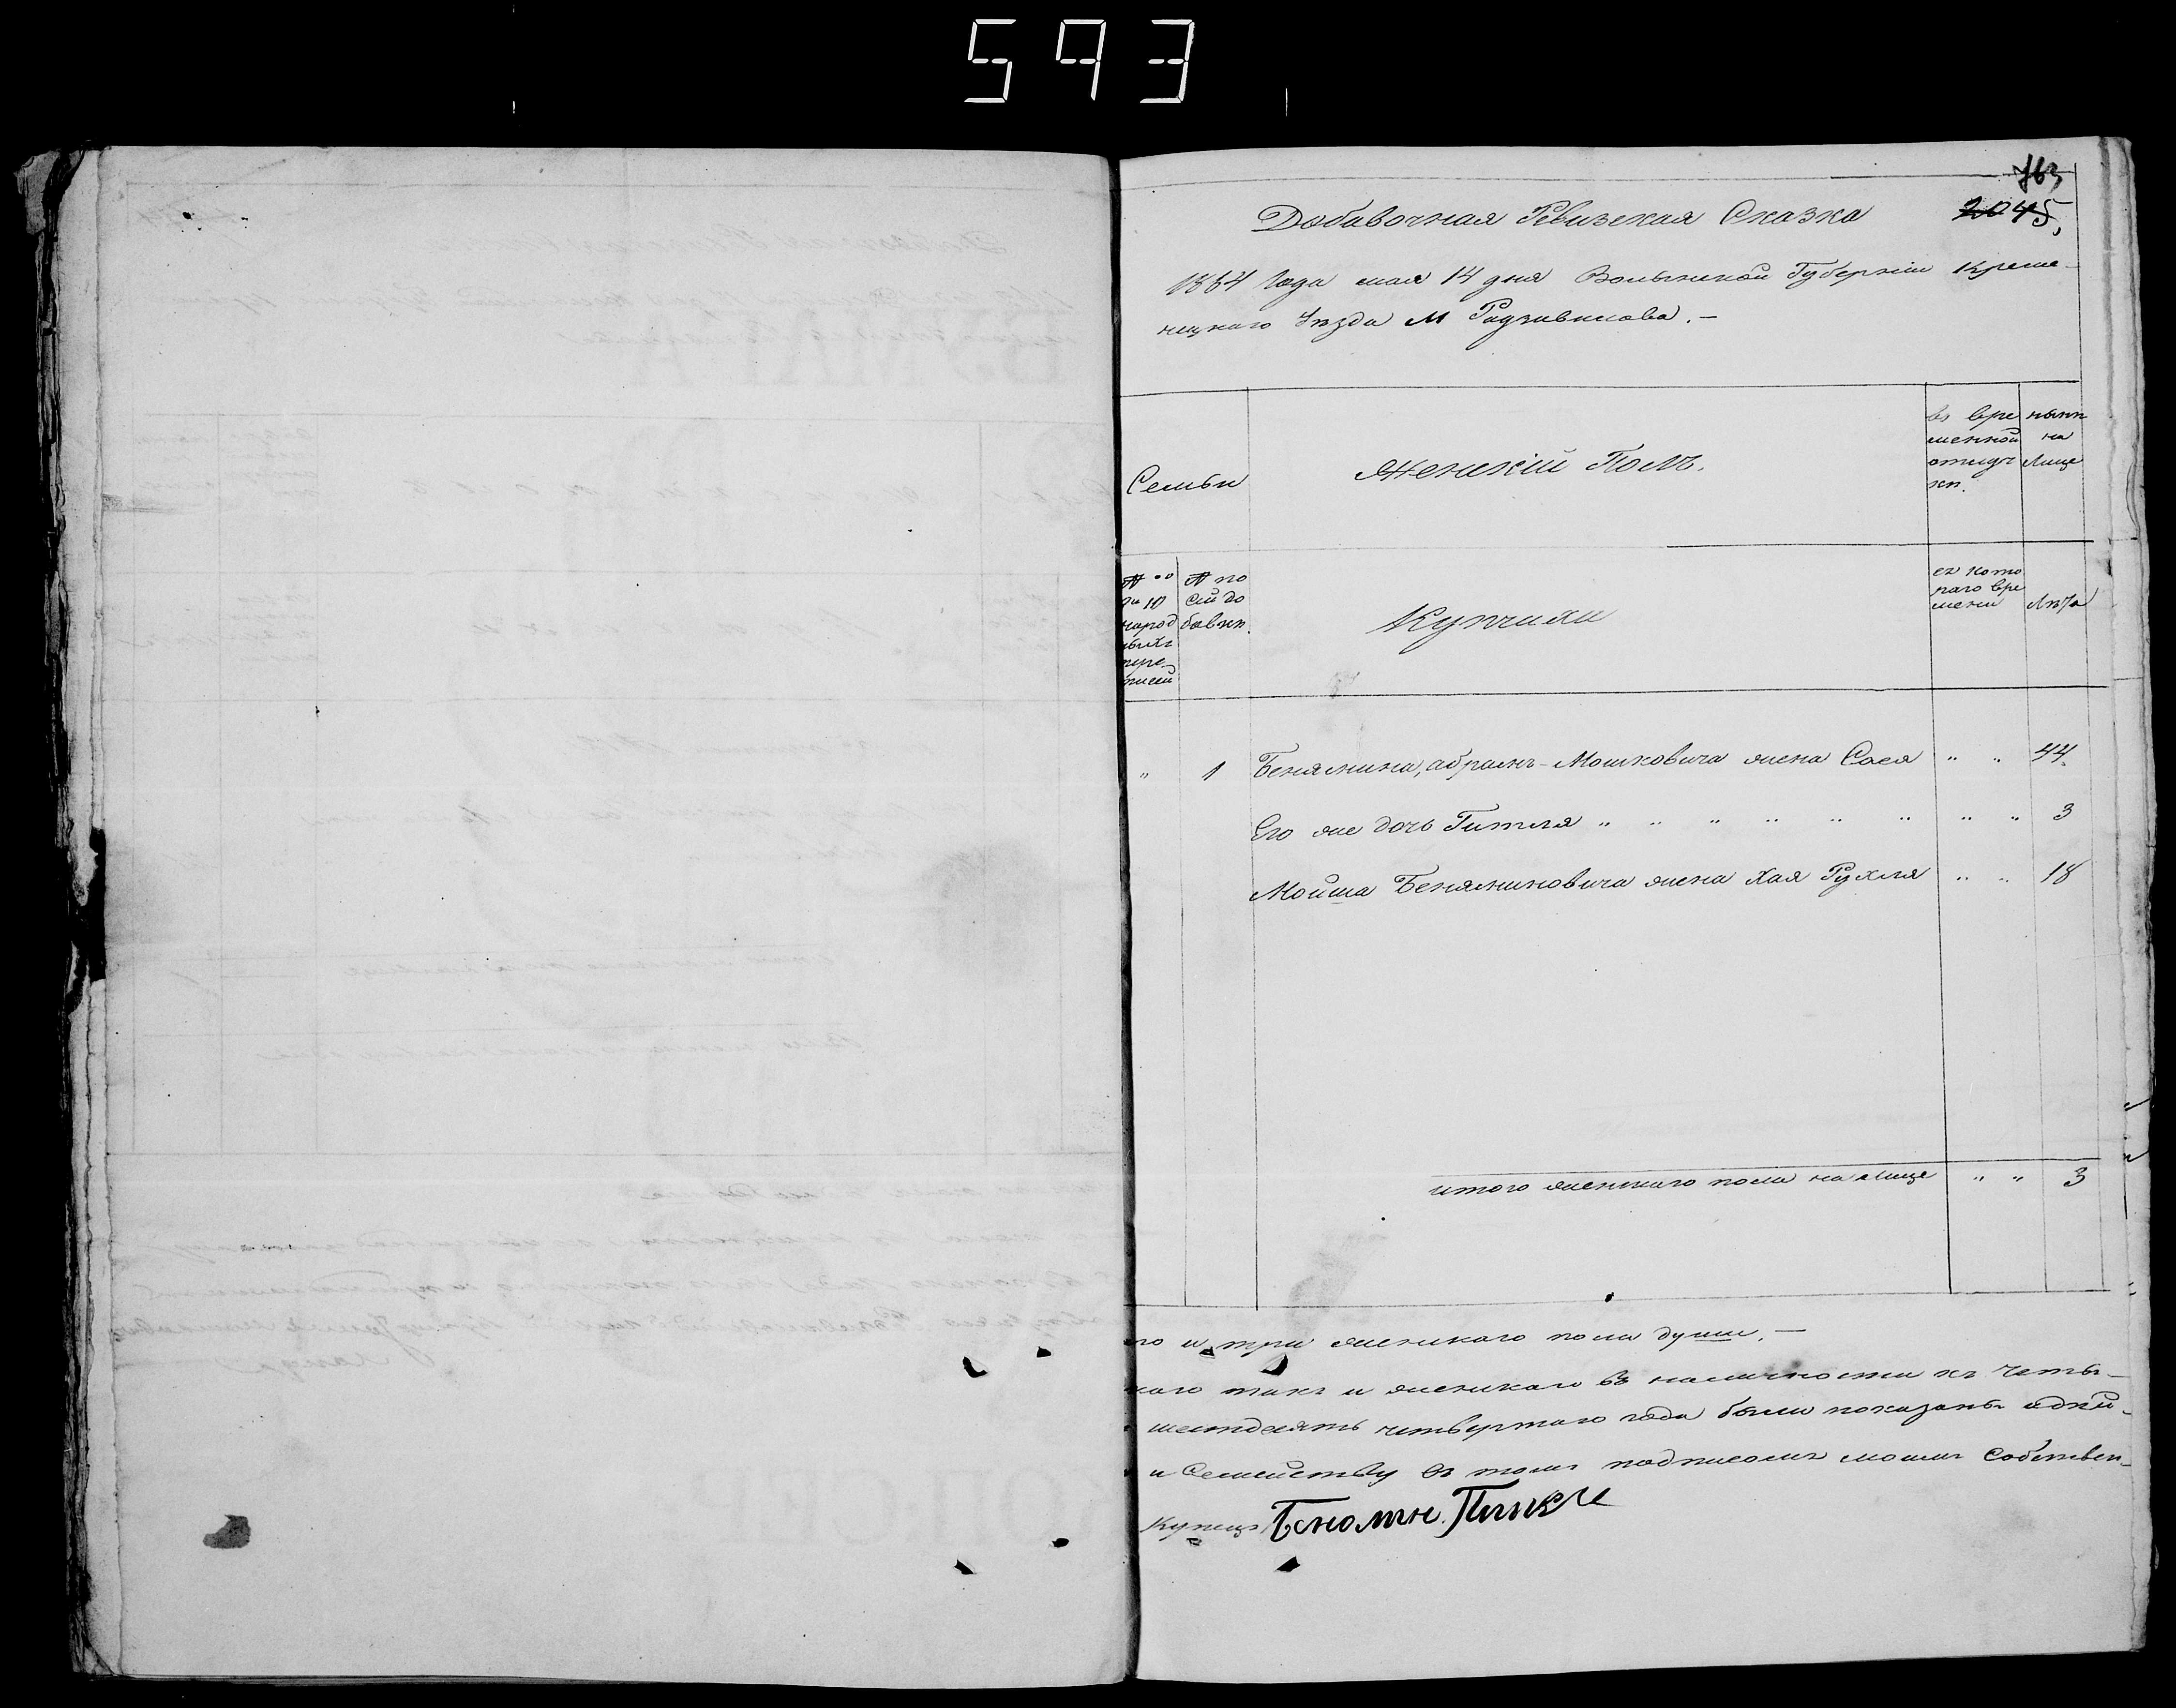 593
763
2045,
Добавочная Ревизская Сказка
1864 Года мая 14 дня Волынской Губерніи Креме-
нецкаго Уѣзда М Радзивилова.-
Семьи
Женскій Полъ.
въ вре
менной
отлуч
кѣ.
нынѣ
на
Лице
№ по
10
народ
ныхъ
пере-
писей
№ по
сей до
бавкѣ.
Купчихи
съ кото
раго вре
мени
Лѣта
" 1 Беніамина, абрамъ-Мошковича жена Сося " " 44.
Его же дочь Гитля " " " " " " " " 3
Мойша Беніаминовича жена Хая Рухля " " 18
итого женскаго пола на Лице " " 3
го и три женскаго пола души.-
каго такъ и женскаго въ наличности къ четы-
шестдесятъ четвертаго года были показаны одни-
и Семейству въ томъ подписомъ моимъ Собствен-
Купецъ